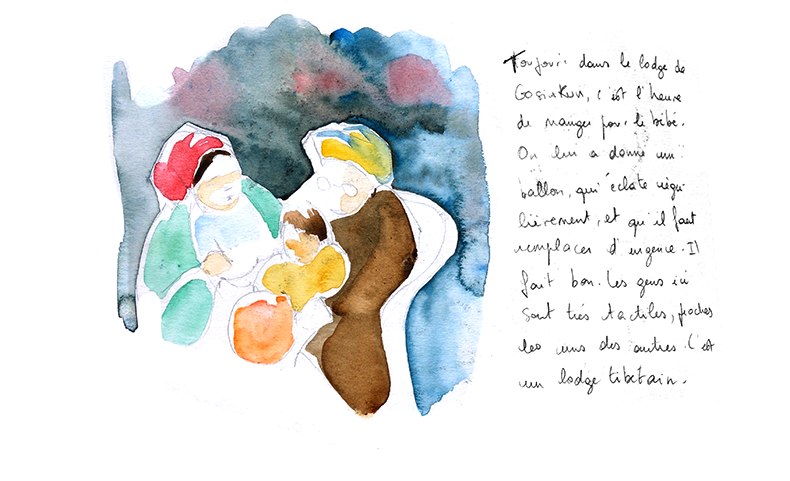 Toujours dans le lodge de
Gosinkun, c'est l'heure
de manger pour le bébé.
On lui a donné un
ballon, qui éclate régu
lièrement, et qu'il faut
remplacer d'urgence. Il
fait bon. Les gens ici
sont très tactiles, proches
les uns des autres. C'est
un lodge tibétain.